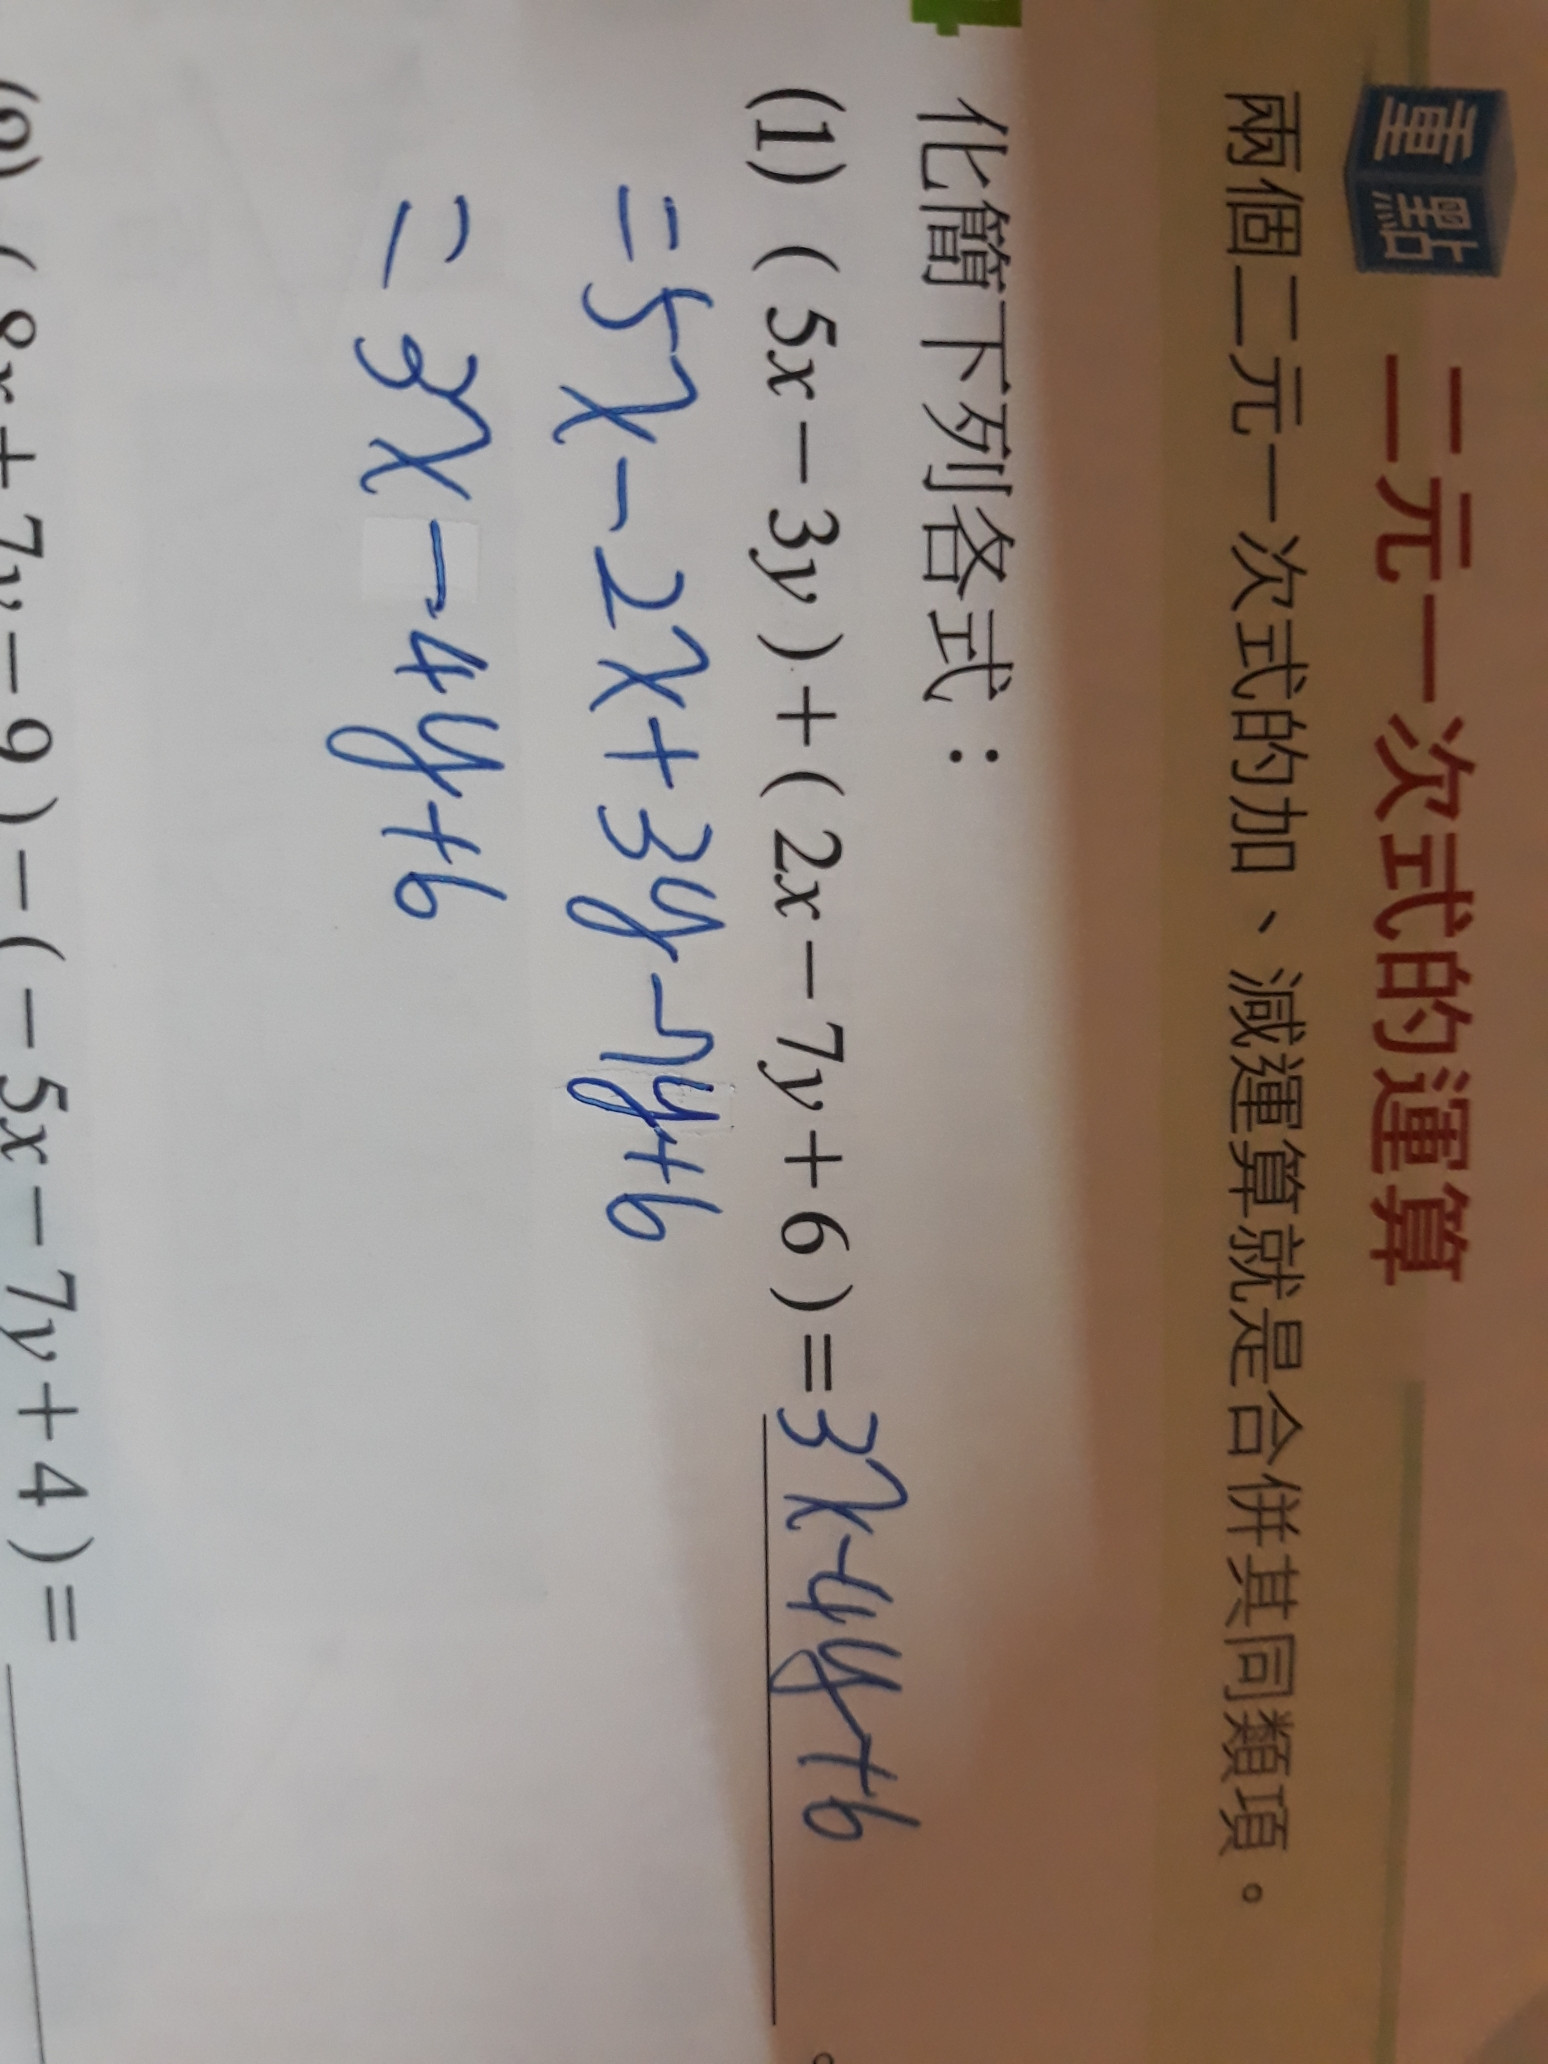 重點 二元一次式的運算
兩個二元一次式的加、減運算就是合併其同類項。
化簡下列各式：
(1) ( 5x − 3y ) + ( 2x − 7y + 6 ) = 3x-4y+6 。
= 5x - 2x + 3y - 7y + 6
= 3x - 4y + 6
( 8x + 7y − 9 ) − ( − 5x − 7y + 4 ) =